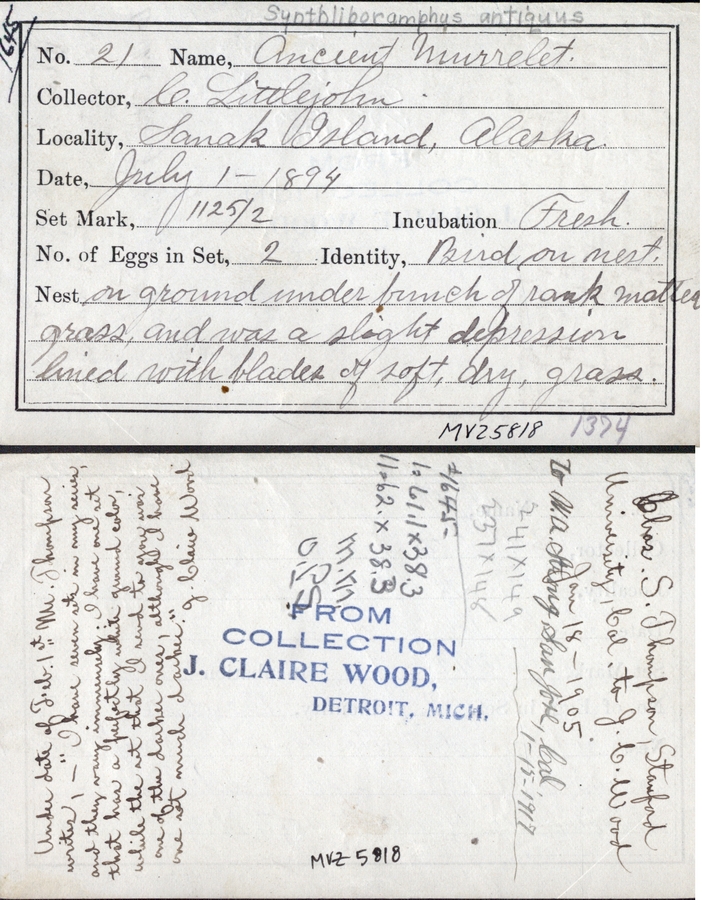 Synthliboramphus antiquus
1645
No. 21 Name, Ancient Murrelet.
Collector, C. Littlejohn.
Locality, Sanak Island, Alaska.
Date, July 1-1894
Set Mark, 1125/2 Incubation Fresh.
No. of Eggs in Set, 2 Identity, Bird on nest.
Nest on ground under bunch of rank matted
grass, and was a slight depression
lined with blades of soft, dry, grass.
MVZ 5818 1374
Chas. S. Thompson, Stanford
University, Cal. to J. C. Wood
Jan 18-1905
To W.A. Strong San Jose, Cal
1-15-1917
2.41 X 1.49
X 1.46
#1645
1: 61.1 x 38.3
11: 62. x 38.3
FROM
COLLECTION
J. CLAIRE WOOD,
DETROIT, MICH.
Under date of Feb. 1st Mr. Thompson
writes, - "I have seven sets in my series,
and they vary immensely. I have one set
that has a perfectly white ground color,
while the set that I send to you was
one of the darker ones, although I have
one set much darker." J. Claire Wood
MVZ 5818